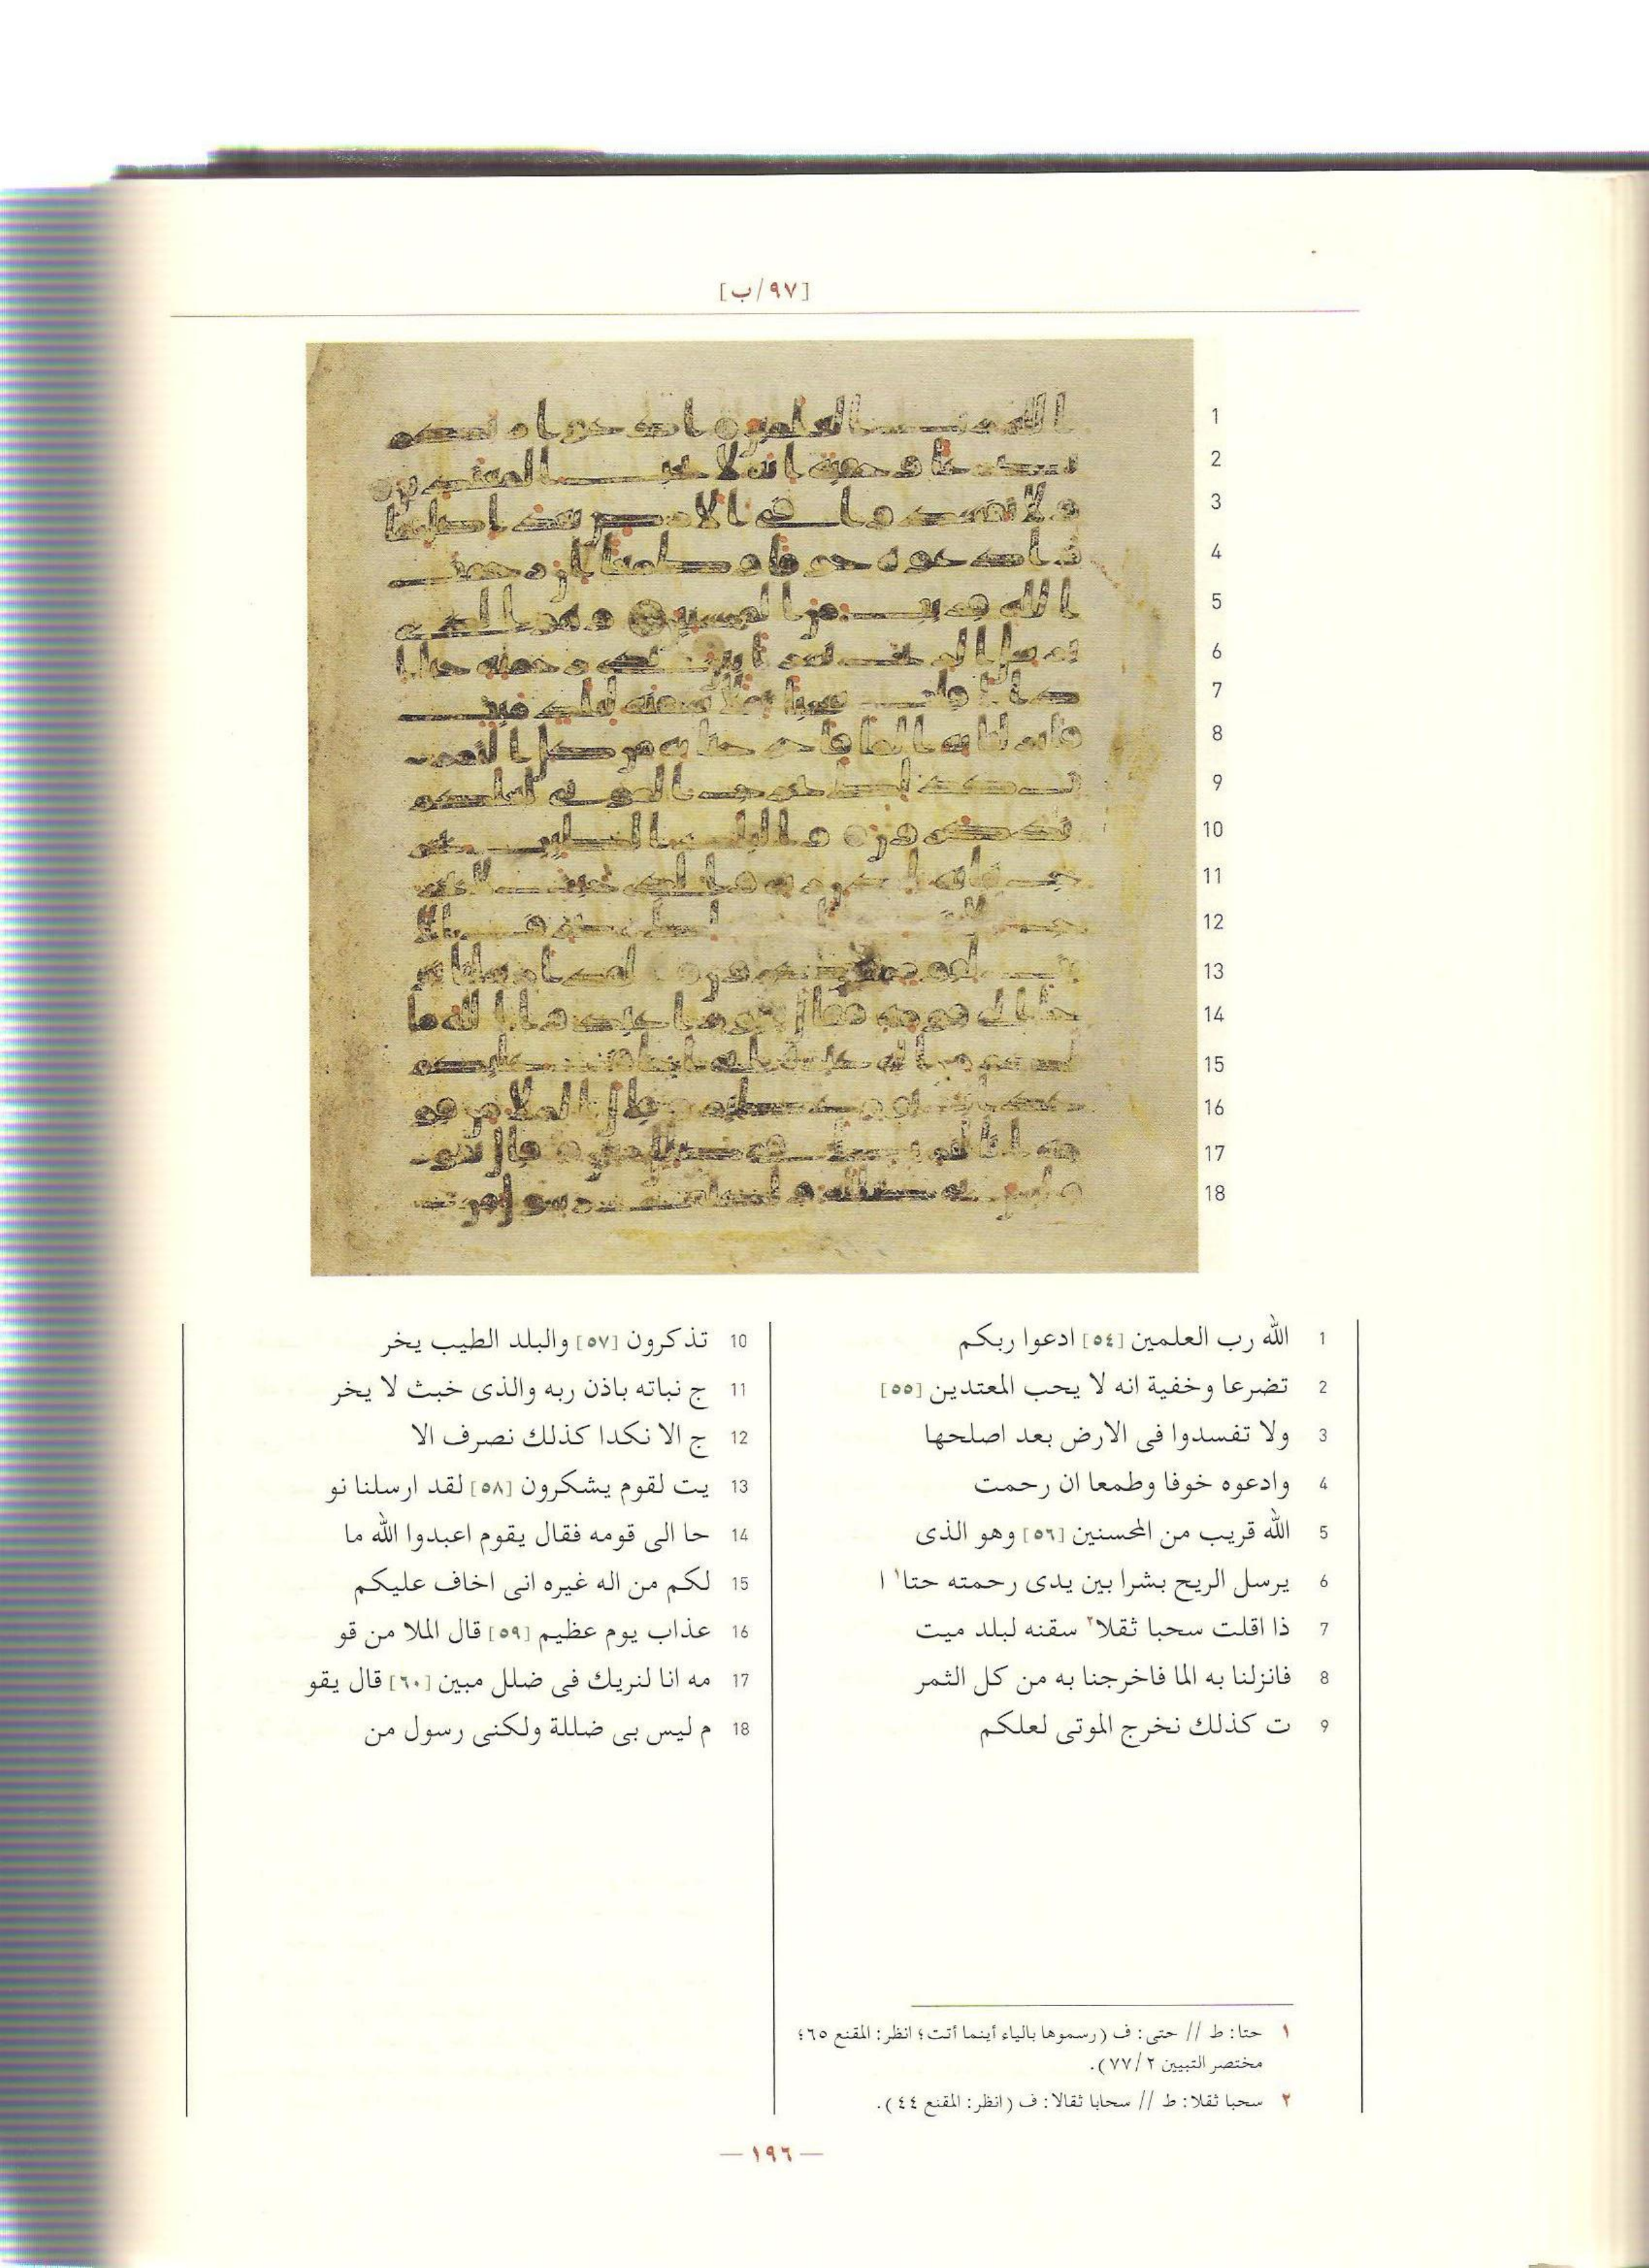 [٩٧/ب]
1 الله رب العلمين [٥٤] ادعوا ربكم
2 تضرعا وخفية انه لا يحب المعتدين [٥٥]
3 ولا تفسدوا فى الارض بعد اصلحها
4 وادعوه خوفا وطمعا ان رحمت
5 الله قريب من المحسنين [٥٦] وهو الذى
6 يرسل الريح بشرا بين يدى رحمته حتا١ ا
7 ذا اقلت سحبا ثقلا٢ سقنه لبلد ميت
8 فانزلنا به الما فاخرجنا به من كل الثمر
9 ت كذلك نخرج الموتى لعلكم
10 تذكرون [٥٧] والبلد الطيب يخر
11 ج نباته باذن ربه والذى خبث لا يخر
12 ج الا نكدا كذلك نصرف الا
13 يت لقوم يشكرون [٥٨] لقد ارسلنا نو
14 حا الى قومه فقال يقوم اعبدوا الله ما
15 لكم من اله غيره انى اخاف عليكم
16 عذاب يوم عظيم [٥٩] قال الملا من قو
17 مه انا لنريك فى ضلل مبين [٦٠] قال يقو
18 م ليس بى ضللة ولكنى رسول من
١ حتا: ط // حتى: ف (رسموها بالياء أينما أتت؛ انظر: المقنع ٦٥؛
مختصر التبيين ٧٧/٢).
٢ سحبا ثقلا: ط // سحابا ثقالا: ف (انظر: المقنع ٤٤).
— ١٩٦ —